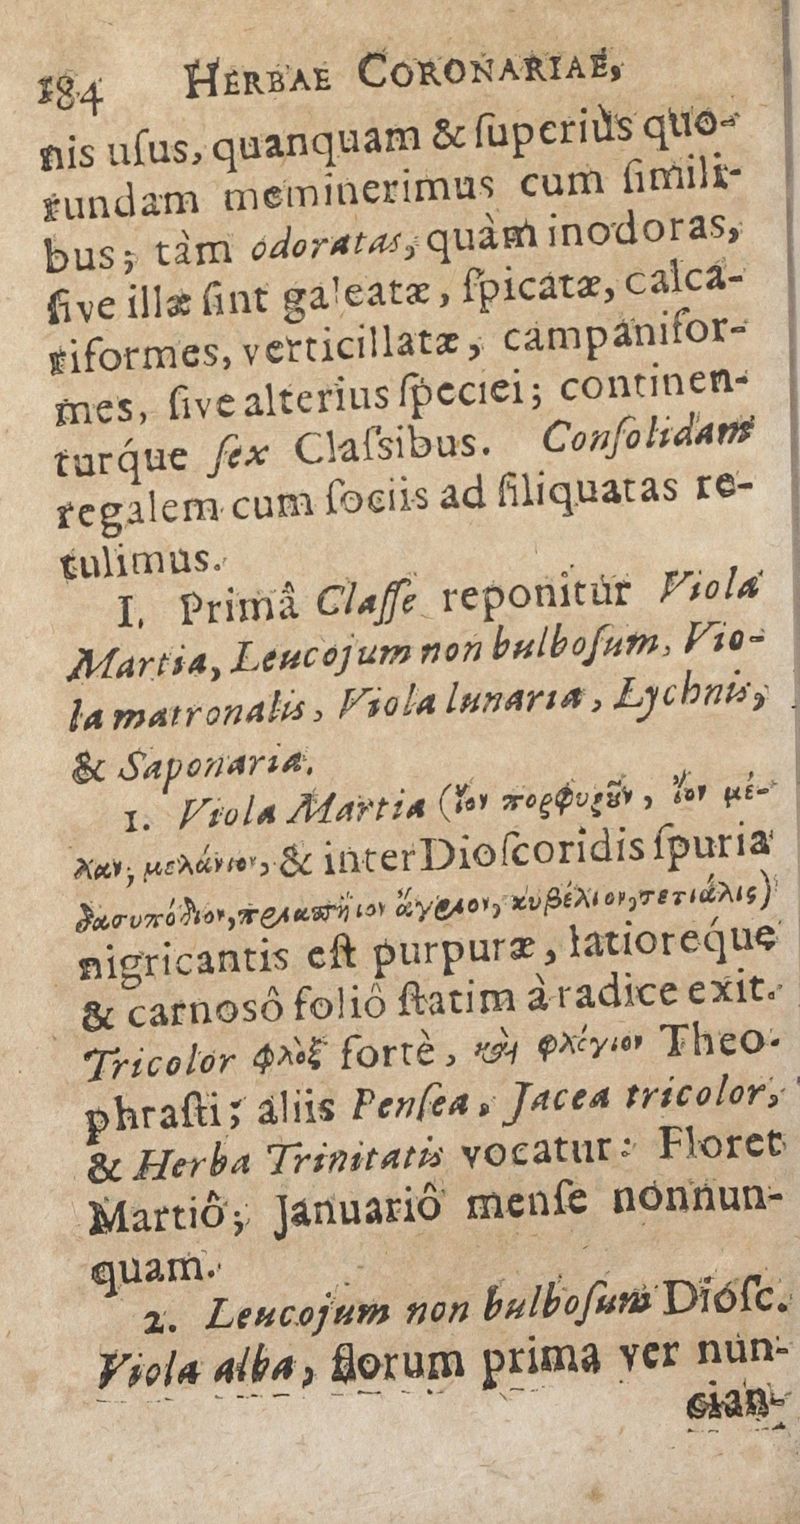 184 HERBAE CORONARIAE,
nis uſus, quanquam & ſuperiùs quo-
rundam meminerimus cum ſimili-
bus; tàm odoratas, quàm inodoras,
ſive illæ ſint galeatæ, ſpicatæ, calca-
riformes, verticillatæ, campanifor-
mes, ſive alterius ſpeciei; continen-
turq́ue ſex Claſsibus. Conſolidam
regalem cum ſociis ad ſiliquatas re-
tulimus.
I. Primâ Claſſe reponitur Viola
Martia, Leucojum non bulboſum, Vio-
la matronalis, Viola lunaria, Lychnis,
& Saponaria.
1. Viola Martia (ἴον πορφυρȣ̃ν, ἴον μέ-
λαν, μελάνιον, & inter Dioſcoridis ſpuria
δασυπόδιον, πριαπήιον ἄγριον, κυβέλιον, τετιάλις)
nigricantis eſt purpuræ, latioreq́ue
& carnosô foliô ſtatim à radice exit.
Tricolor φλὸξ fortè, καὶ φλέγιον Theo-
phraſti; aliis Penſea, Jacea tricolor,
& Herba Trinitatis vocatur: Floret
Martiô; Januariô menſe nonnun-
quam.
2. Leucojum non bulboſum Dioſc.
Viola alba, florum prima ver nun-
cian-